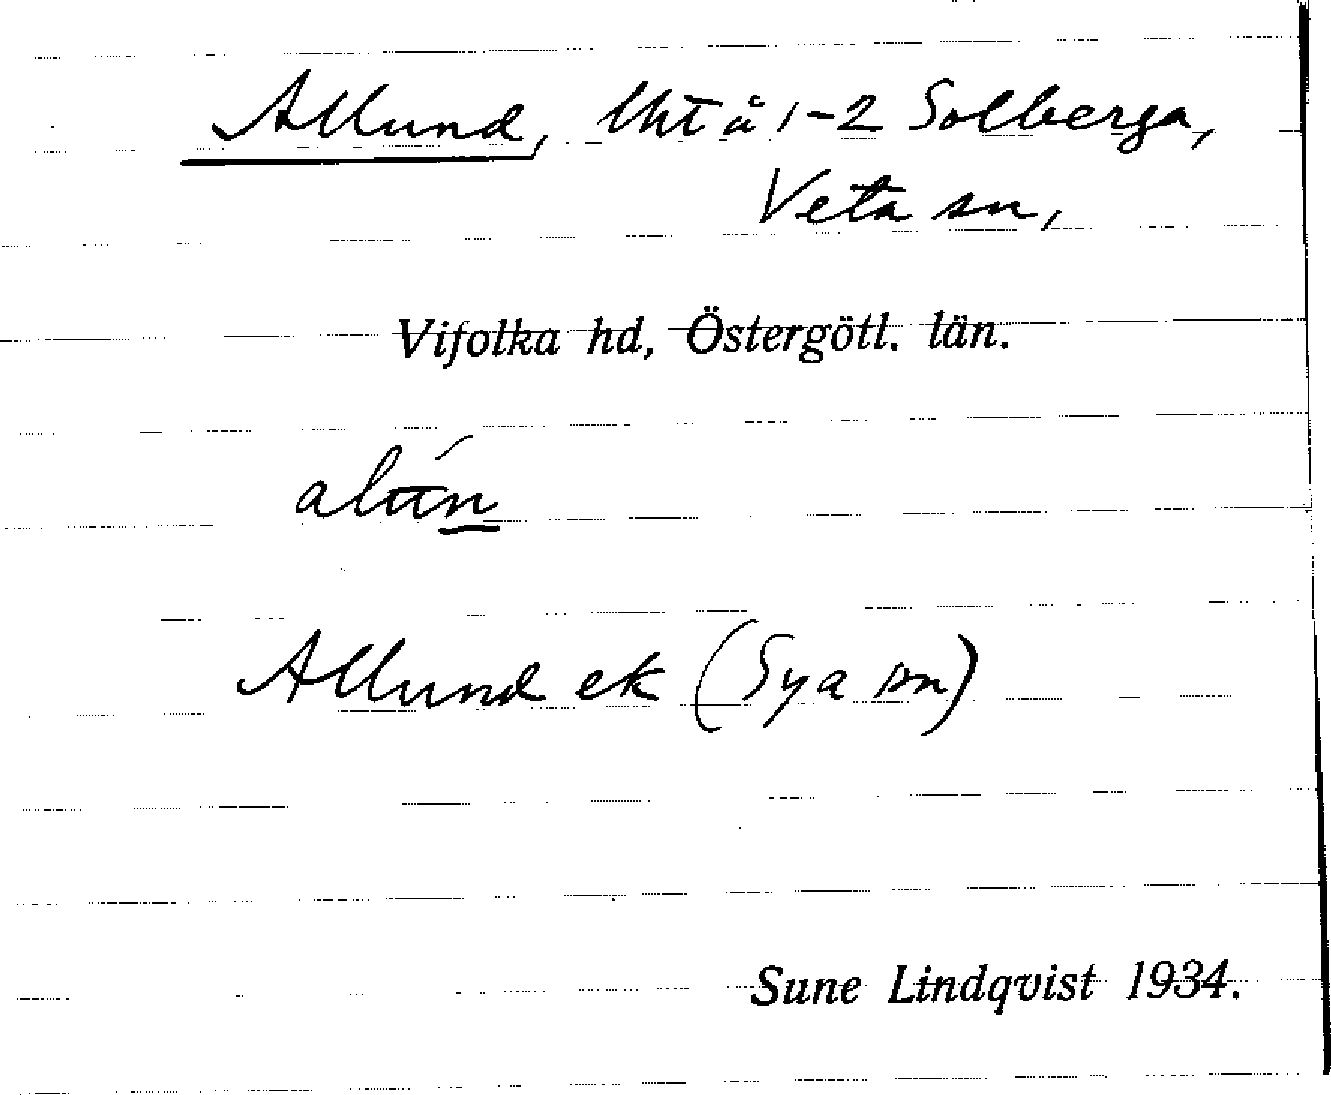 Allund, lht å 1-2 Solberga,
Veta sn,
Vifolka hd, Östergötl. län.
Allund ek (Sya sn)
Sune Lindqvist 1934.